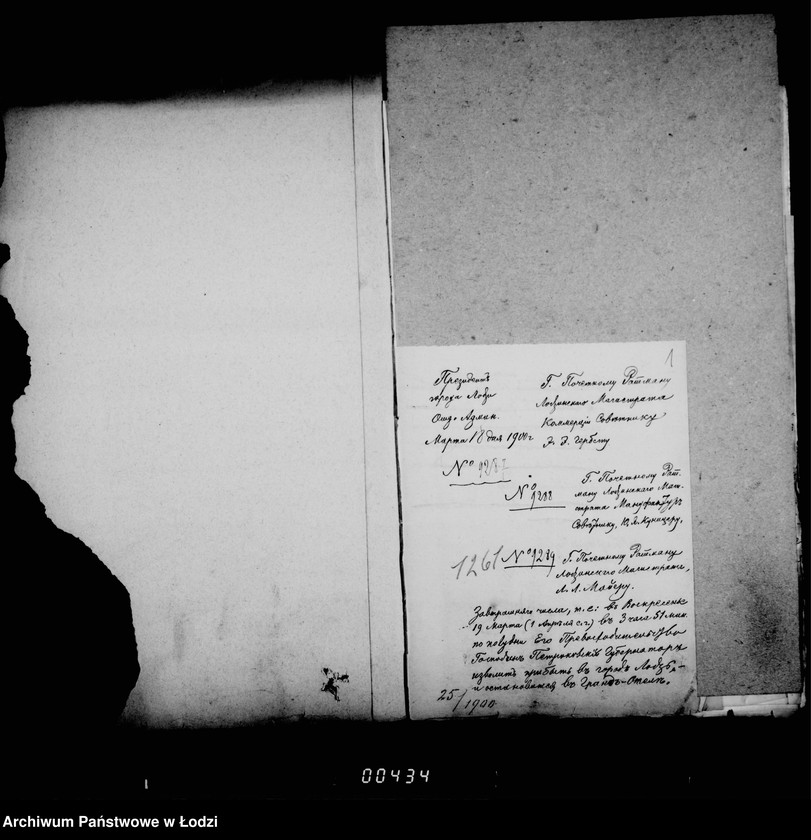 1
Президентъ
города Лодзи
Отд. Админ.
Марта 18 дня 1900 г
№ 9287
Г. Почетному Ратману
Лодзинскаго Магистрата
Коммерціи Совѣтнику
Э. Э. Гербсту
№ 9288
Г. Почетному Рат-
ману Лодзинскаго Маги-
страта Мануфактуръ
Совѣтнику, Ю. Я. Куницеру.
1261 № 9289
Г. Почетному Ратману
Лодзинскаго Магистрата,
Л. Л. Мейеру.
Завтрашняго числа, т. е: въ Воскресенье
19 Марта (1 Апрѣля с. г.) въ 3 часа 51 мин.
по полудни Его Превосходительство
Господинъ Петроковскій Губернаторъ
изволитъ прибыть въ городъ Лодзь
и остановится въ Грандъ-Отелѣ.
25/1900
00434
Archiwum Państwowe w Łodzi